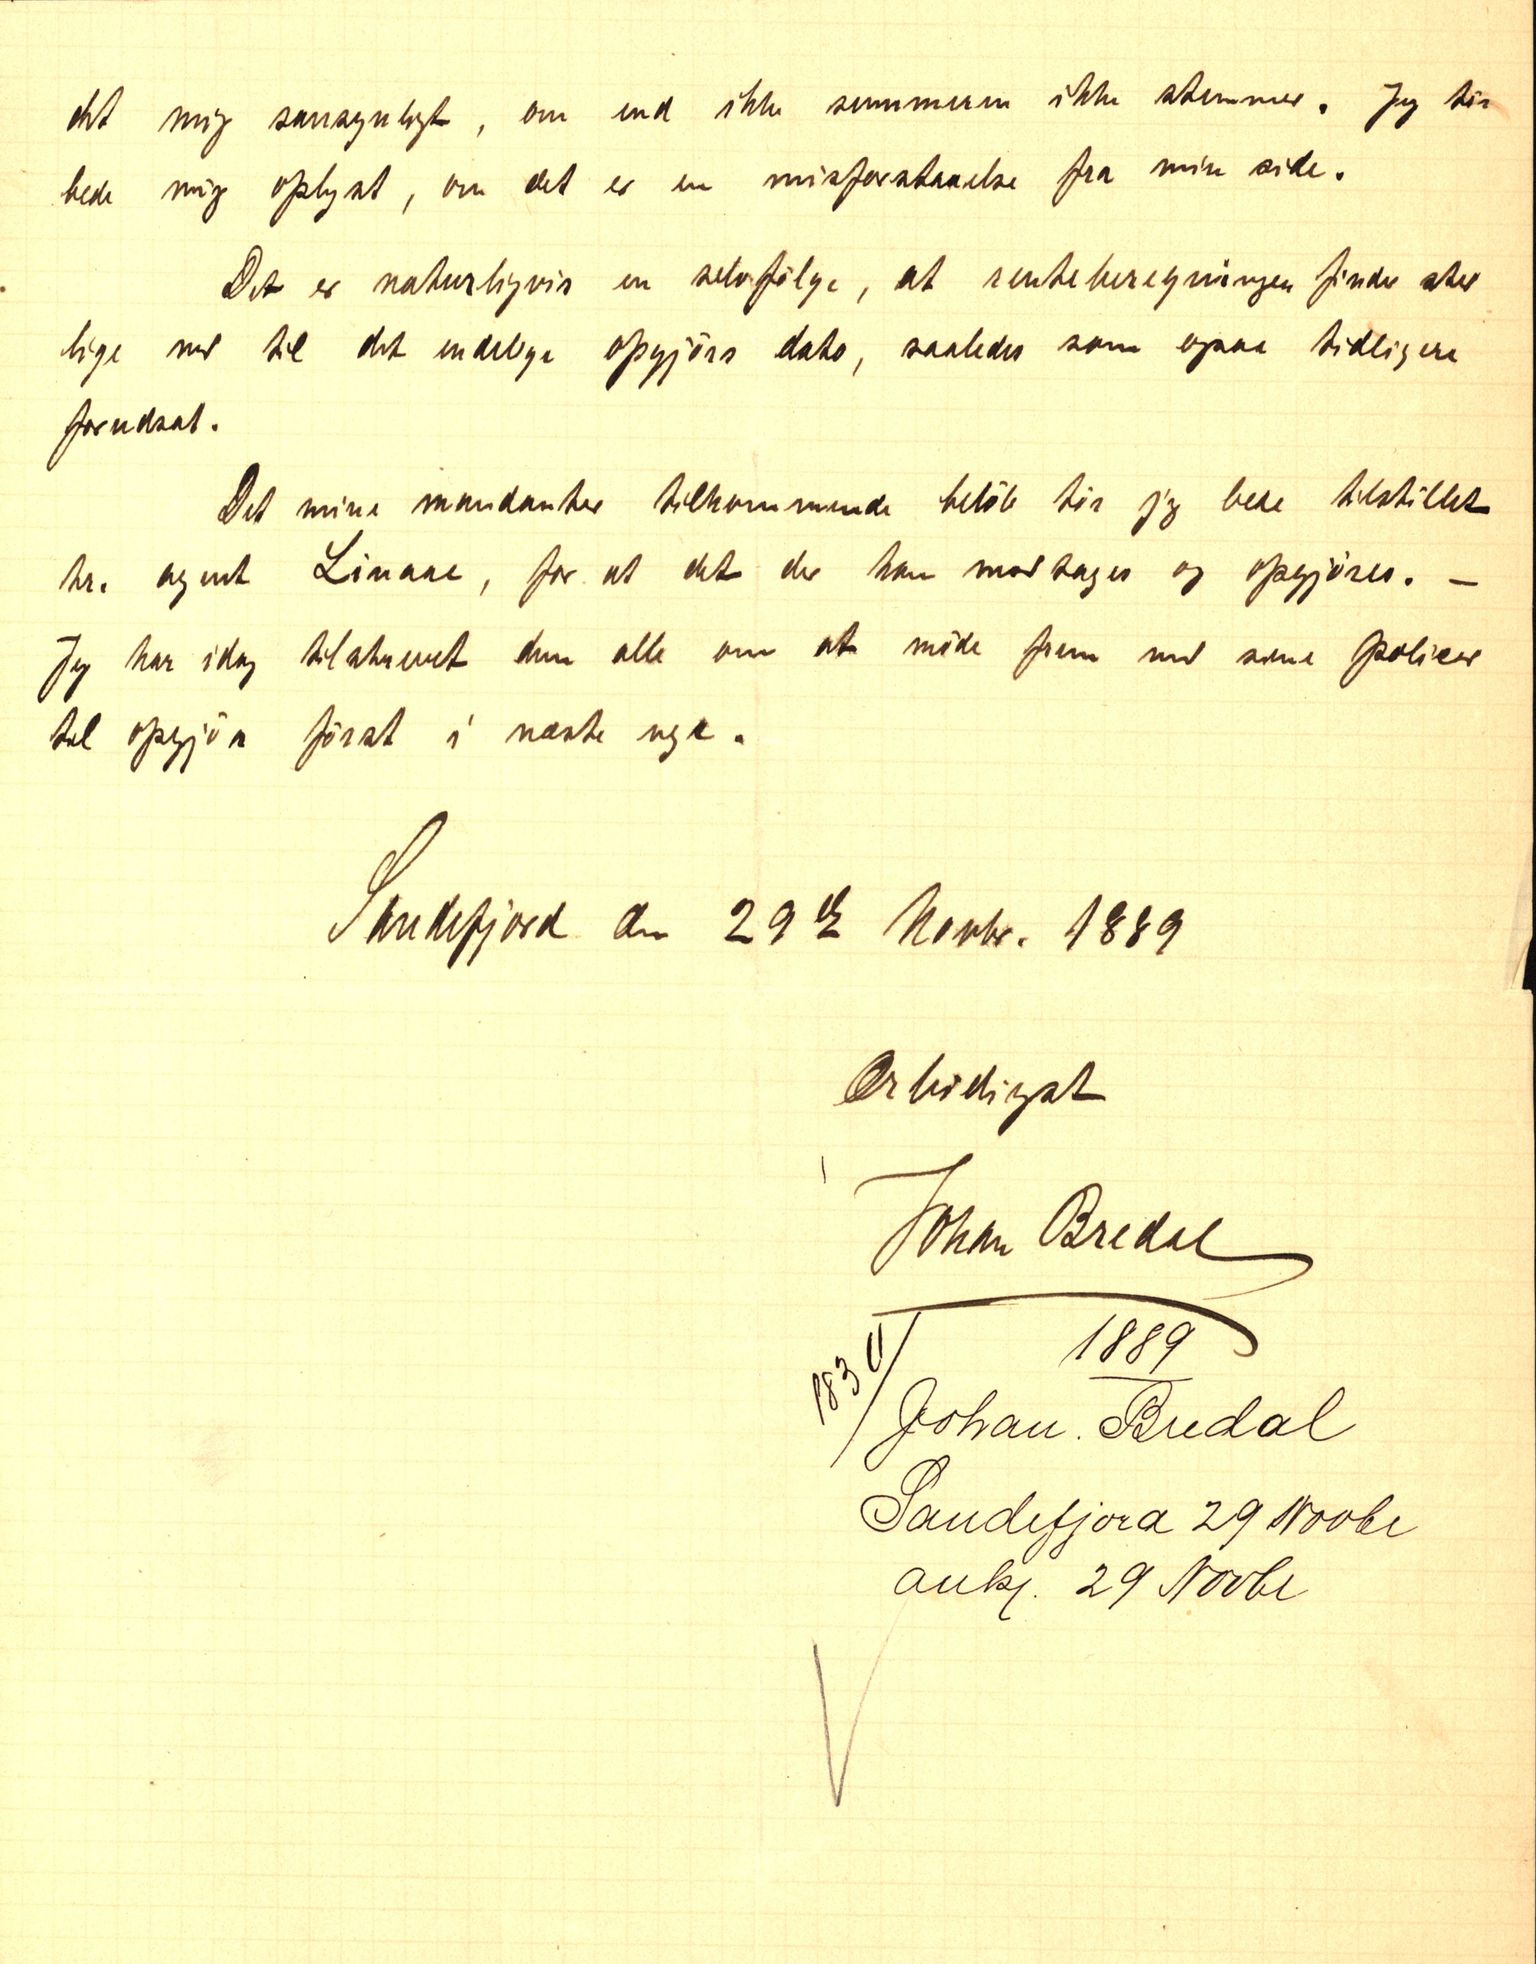 det mig sansynligt, om end ikke summeren ikke stemmer. Jeg tör
bede mig oplyst, om det er en misforstaaelse fra min side.
Det er naturligvis en selvfölge, at renteberegningen finder sted
lige ned til det endelige opgjörs dato, saaledes som ogsaa tidligere
forudsat.
Det mine mandanter tilkommende belöb tör jeg bede tilstillet
hr. agent Linaae, for at det der kan modtages og opgjöres. –
Jeg har idag tilskrevet dem alle om at möde frem med sine policer
til opgjör först i næste uge.
Sandefjord den 29de Novbr. 1889
Ærbödigst
Johan Bredal
1889
Johan. Bredal
Sandefjord 29 Novbr
ankj. 29 Novbr